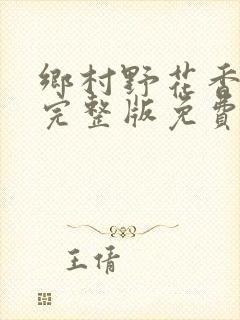 鄉村野花香
完整版免費
王倩